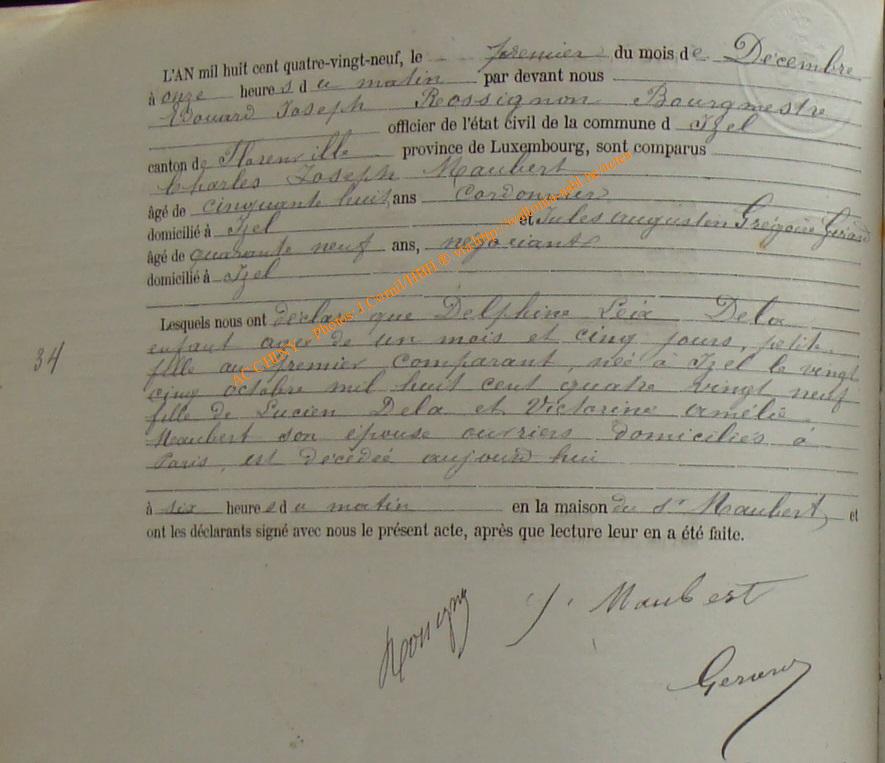 L'AN mil huit cent quatre-vingt-neuf, le premier du mois de Décembre
à onze heures du matin par devant nous
Edouard Joseph Rossignon Bourgmestre
officier de l'état civil de la commune d Izel
canton de Florenville province de Luxembourg, sont comparus
Charles Joseph Maubert
âgé de cinquante huit ans Cordonnier
domicilié à Izel et Jules Augustin Grégoire Gérard
âgé de quarante neuf ans, négociant
domicilié à Izel
Lesquels nous ont déclaré que Delphine Leia Dela
enfant agée de un mois et cinq jours, petite
fille au premier comparant, née à Izel le vingt
cinq octobre mil huit cent quatre vingt neuf
34
fille de Lucien Dela et Victorine Amélie
Maubert son épouse ouvriers domiciliés à
Paris, est décédée aujourd'hui
à six heures du matin en la maison du Sr Maubert, et
ont les déclarants signé avec nous le présent acte, après que lecture leur en a été faite.
J. Maubert
Gerard